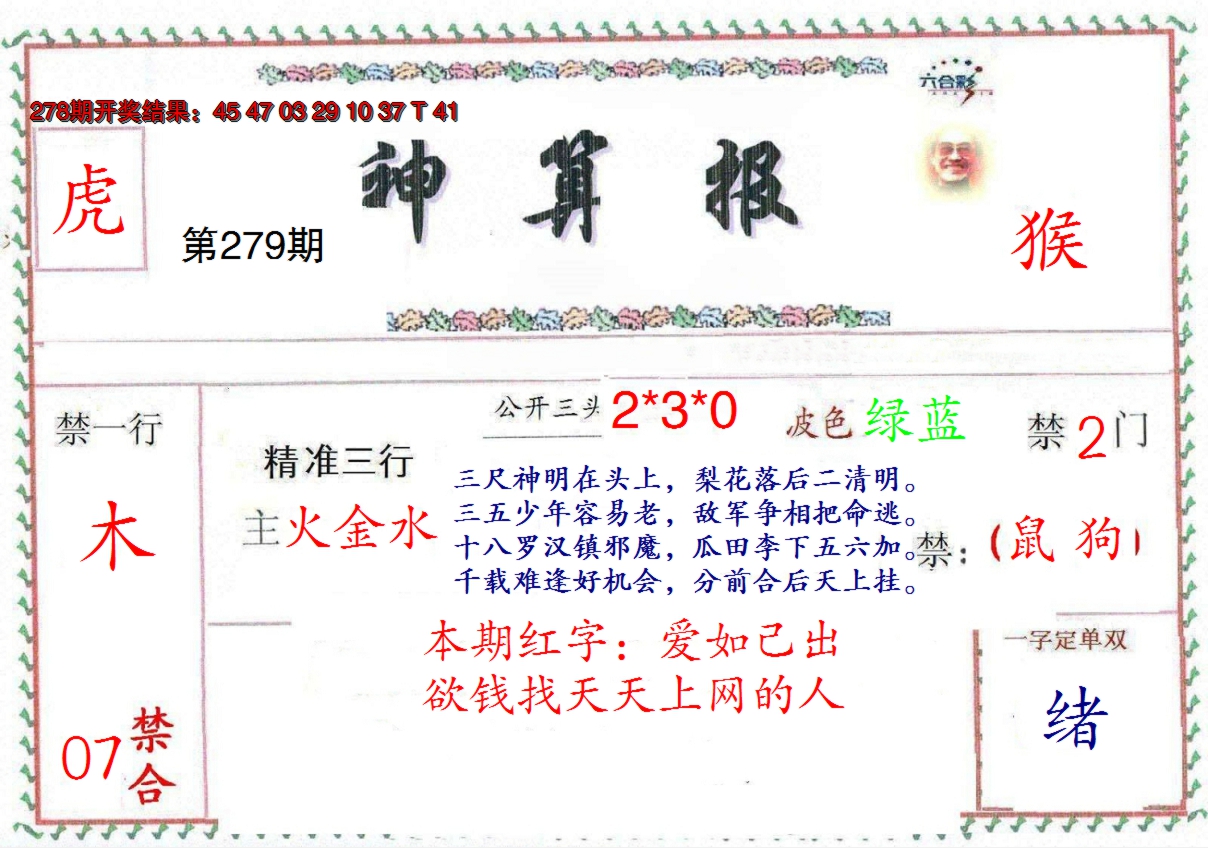 六合彩
278期开奖结果：45 47 03 29 10 37 T 41
虎
神算报
第279期
猴
禁一行
木
07禁合
公开三头 2*3*0
波色 绿蓝
禁2门
精准三行
主火金水
三尺神明在头上，梨花落后二清明。
三五少年容易老，敌军争相把命逃。
十八罗汉镇邪魔，瓜田李下五六加。
千载难逢好机会，分前合后天上挂。
禁：（鼠 狗）
本期红字：爱如己出
欲钱找天天上网的人
一字定单双
绪